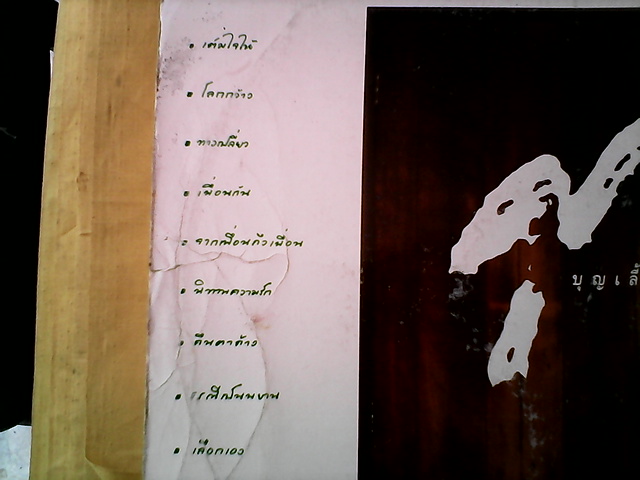 • เต็มใจให้
• โลกกว้าง
• ทางเปลี่ยว
• เพื่อนกัน
• จากเพื่อนถึงเพื่อน
• นิทานความรัก
• คืนคาค้าง
• เลือกเอง
บุญเ